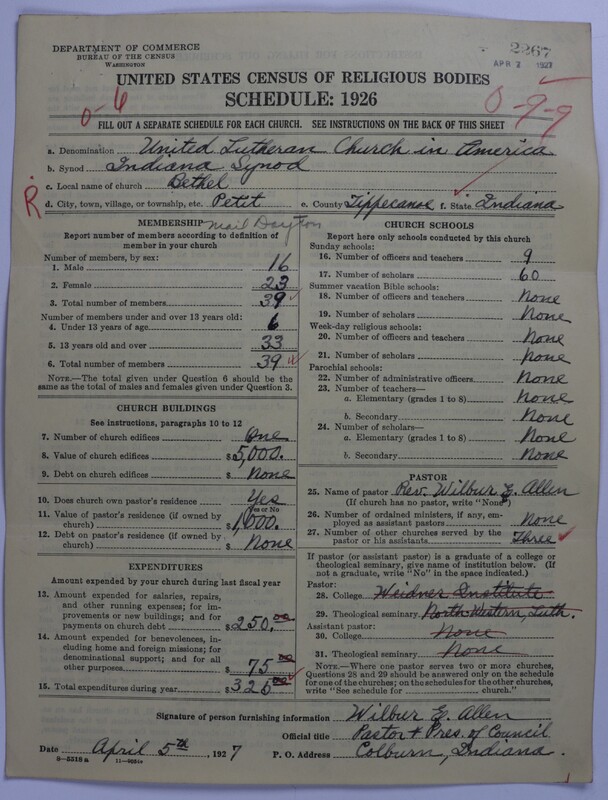 DEPARTMENT OF COMMERCE
BUREAU OF THE CENSUS
WASHINGTON
2267
APR 7 1927
UNITED STATES CENSUS OF RELIGIOUS BODIES
SCHEDULE: 1926
0-6
0-9-9
FILL OUT A SEPARATE SCHEDULE FOR EACH CHURCH. SEE INSTRUCTIONS ON THE BACK OF THIS SHEET
a. Denomination United Lutheran Church in America
b. Synod Indiana Synod
c. Local name of church Bethel
R
d. City, town, village, or township, etc. Petit e. County Tippecanoe f. State Indiana
mail Dayton
MEMBERSHIP
Report number of members according to definition of
member in your church
Number of members, by sex:
1. Male 16
2. Female 23
3. Total number of members 39
Number of members under and over 13 years old:
4. Under 13 years of age 6
5. 13 years old and over 33
6. Total number of members 39
NOTE.—The total given under Question 6 should be the
same as the total of males and females given under Question 3.
CHURCH BUILDINGS
See instructions, paragraphs 10 to 12
7. Number of church edifices One
8. Value of church edifices $5,000.
9. Debt on church edifices $ None
10. Does church own pastor's residence Yes
Yes or No
11. Value of pastor's residence (if owned by
church) $1,000.
12. Debt on pastor's residence (if owned by
church) $ None
EXPENDITURES
Amount expended by your church during last fiscal year
13. Amount expended for salaries, repairs,
and other running expenses; for im-
provements or new buildings; and for
payments on church debt $250.00
14. Amount expended for benevolences, in-
cluding home and foreign missions; for
denominational support; and for all
other purposes $ 75 00
15. Total expenditures during year $325 00
CHURCH SCHOOLS
Report here only schools conducted by this church
Sunday schools:
16. Number of officers and teachers 9
17. Number of scholars 60
Summer vacation Bible schools:
18. Number of officers and teachers None
19. Number of scholars None
Week-day religious schools:
20. Number of officers and teachers None
21. Number of scholars None
Parochial schools:
22. Number of administrative officers None
23. Number of teachers—
a. Elementary (grades 1 to 8) None
b. Secondary None
24. Number of scholars—
a. Elementary (grades 1 to 8) None
b. Secondary None
PASTOR
25. Name of pastor Rev. Wilbur E. Allen
(If church has no pastor, write "None")
26. Number of ordained ministers, if any, em-
ployed as assistant pastors None
27. Number of other churches served by the
pastor or his assistants Three
If pastor (or assistant pastor) is a graduate of a college or
theological seminary, give name of institution below. (If
not a graduate, write "No" in the space indicated.)
Pastor:
28. College Weidner Institute
29. Theological seminary North Western, Luth.
Assistant pastor:
30. College None
31. Theological seminary None
NOTE.—Where one pastor serves two or more churches,
Questions 28 and 29 should be answered only on the schedule
for one of the churches; on the schedules for the other churches,
write "See schedule for church."
Signature of person furnishing information Wilbur E. Allen
Official title Pastor & Pres. of Council
Date April 5th, 1927 P. O. Address Colburn, Indiana.